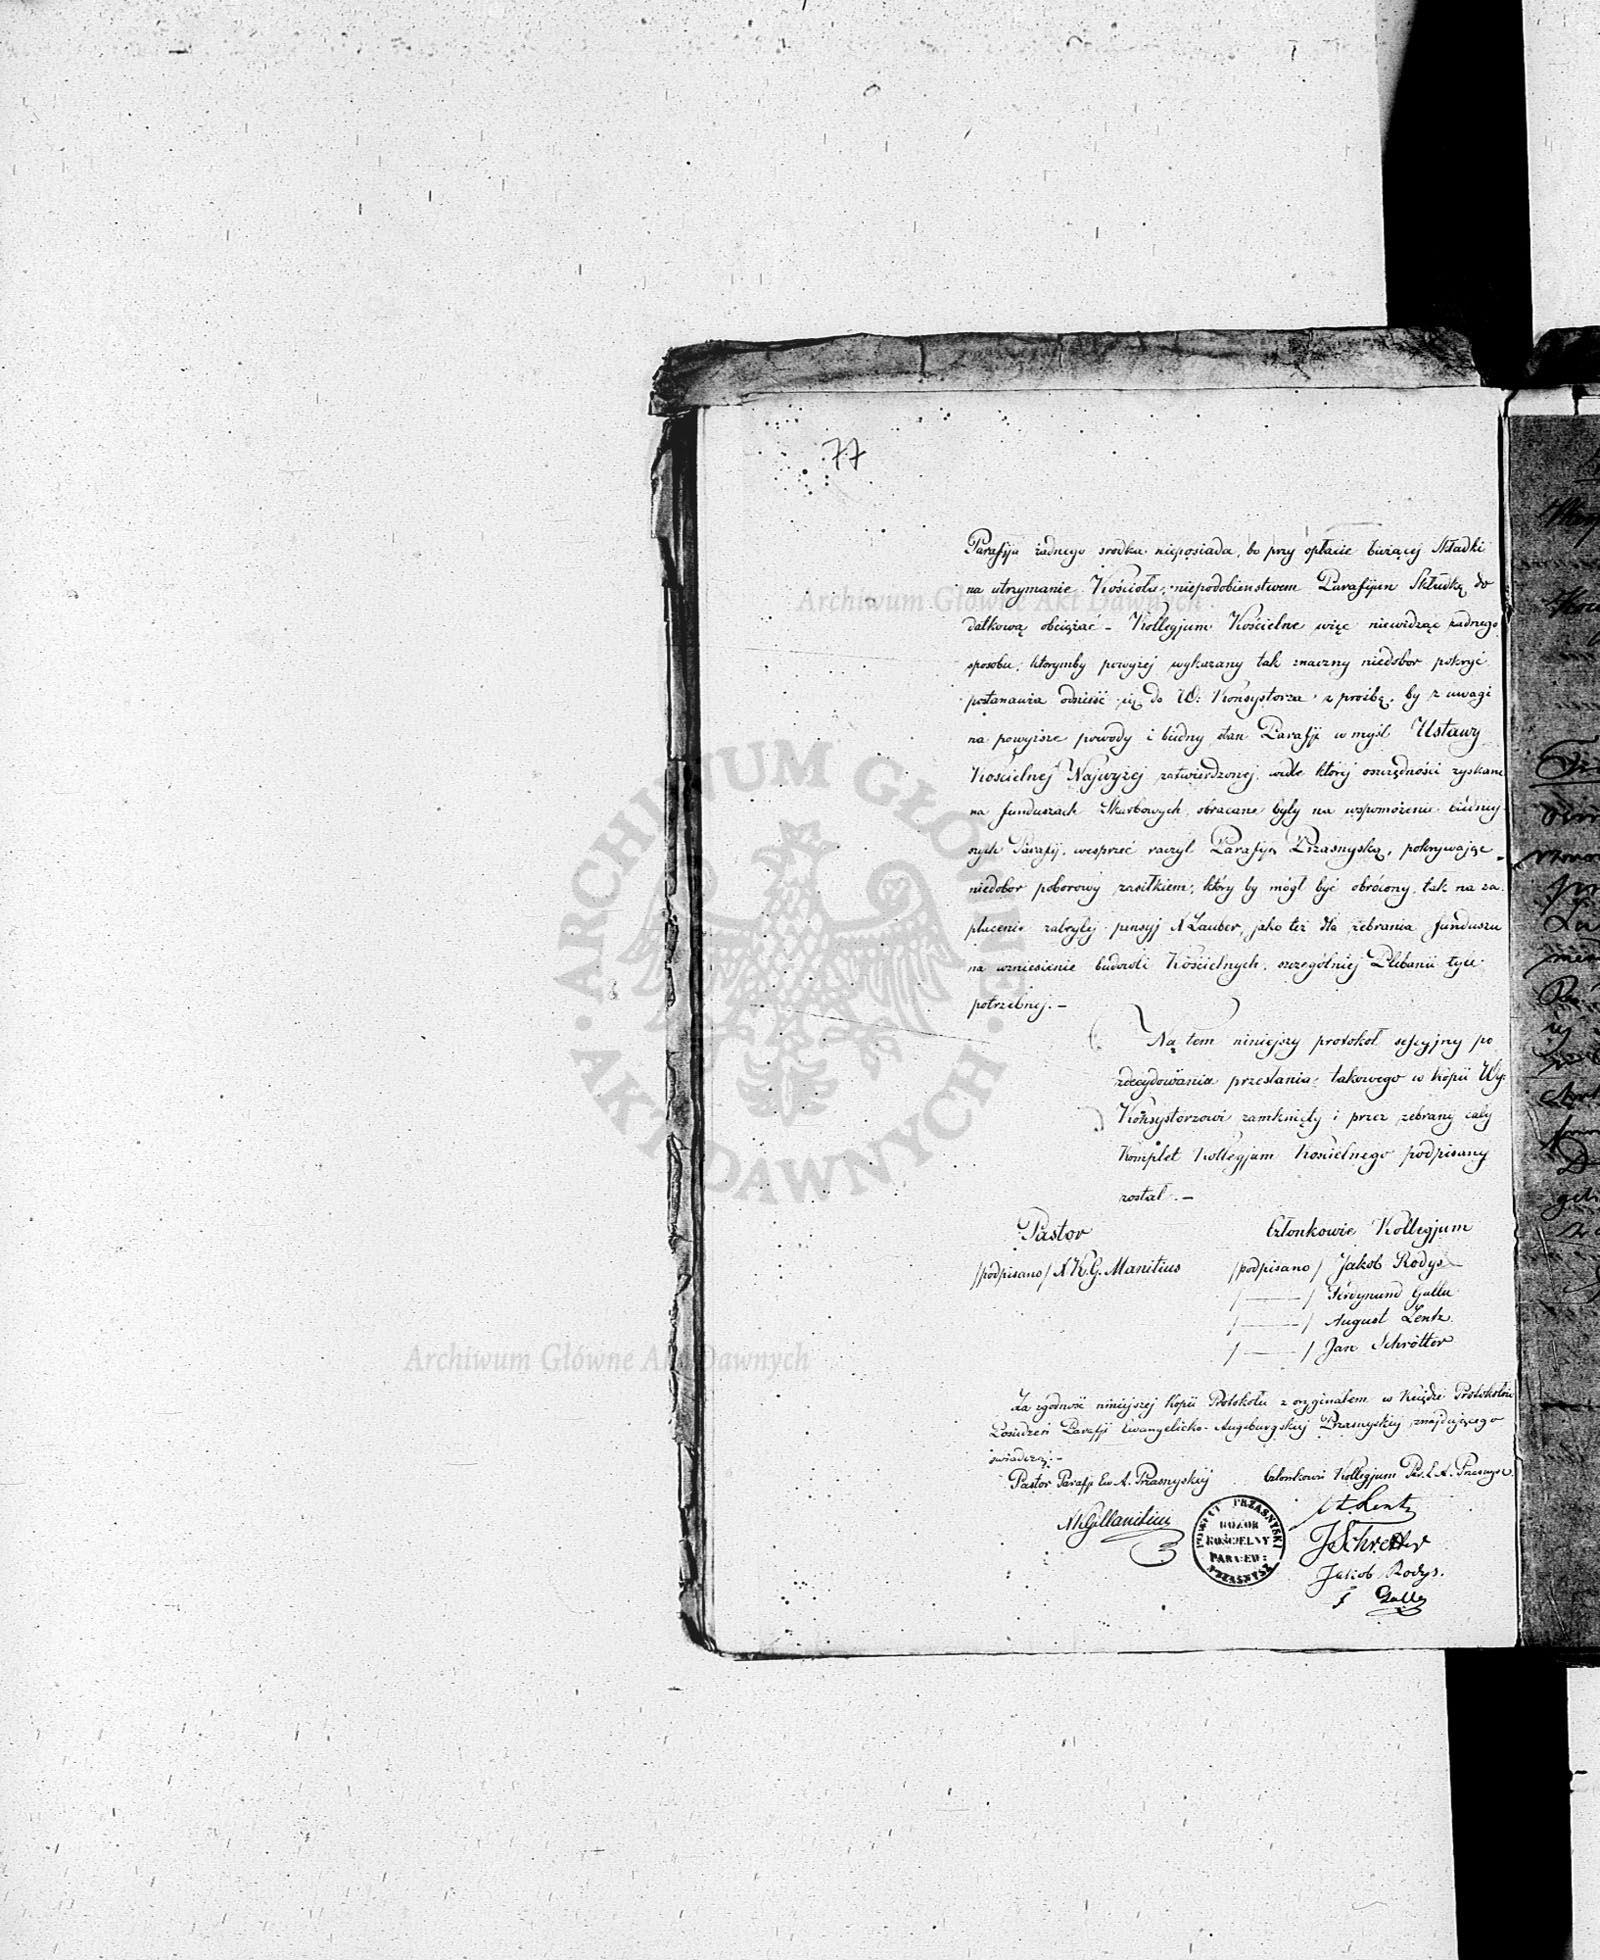 77
Parafija żadnego srodka nieposiada, bo przy opłacie bieżącej Składki
na utrzymanie Kościoła, niepodobieństwem Parafijan Składką do
datkową obciążać – Kollegjum Kościelne więc niewidząc żadnego
sposobu, którymby powyżej wykazany tak znaczny niedobor pokryć
postanawia odnieść się do W: Konsystorza z prośbą, by z uwagi
na powyższe powody i biedny stan Parafji w myśl Ustawy
Kościelnej Najwyżej zatwierdzonej, wedle której oszczędności zyskane
na funduszach Skarbowych, obracane były na wspomożenie biedniej
szych Parafij, wesprzeć raczył Parafiję Przasnyską, pokrywając
niedobor poborowy zasiłkiem, który by mógł być obrócony, tak na za
płacenie zaległej pensyj X Lauber, jako też dla zebrania funduszu
na wzniesienie budowli Kościelnych, szczególniej Plebanii tyle
potrzebnej. –
Na tem niniejszy protokoł sessyjny po
zdecydowania przesłania takowego w kopii Wy:
Konsystorzowi zamknięty i przez zebrany cały
Komplet Kollegjum Kościelnego podpisany
został. –
Pastor Członkowie Kollegjum
/podpisano/ X K. G. Manitius /podpisano/ Jakob Rodys
/ — / Ferdynand Galle
/ — / August Lentz
/ — / Jan Schrötter
Za zgodność niniejszej kopii Protokołu z oryginałem w Księdze Protokołów
Posiedzeń Parafji Ewangelicko-Augsburgskiej Przasnyskiej znajdującego
świadczą: –
Pastor Parafji Ew A. Przasnyskiej Członkowie Kollegjum Par. E. A. Przasnysz.
X K G Manitius A. Lentz
POWIAT PRZASNYSKI
DOZOR
KOŚCIELNY
PAR: EW:
PRZASNYSZ
J Schrötter
Jakob Rodys.
F Galle
Archiwum Główne Akt Dawnych
ARCHIWUM GŁÓWNE · AKT DAWNYCH ·
Archiwum Główne Akt Dawnych